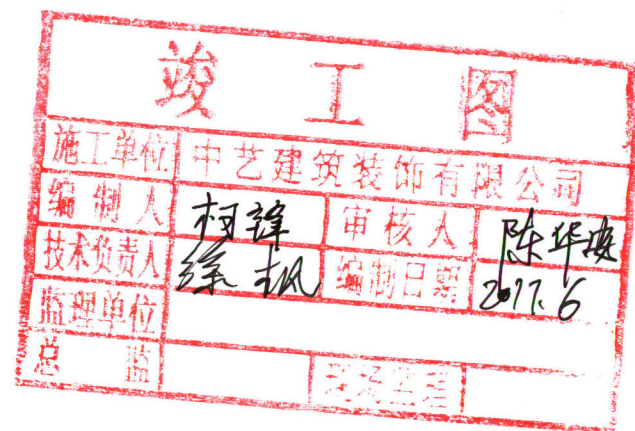 竣工图
施工单位 中艺建筑装饰有限公司
编制人 柯锋 审核人 陈华安
技术负责人 徐枫 编制日期 2017.6
监理单位
总监 现场监理